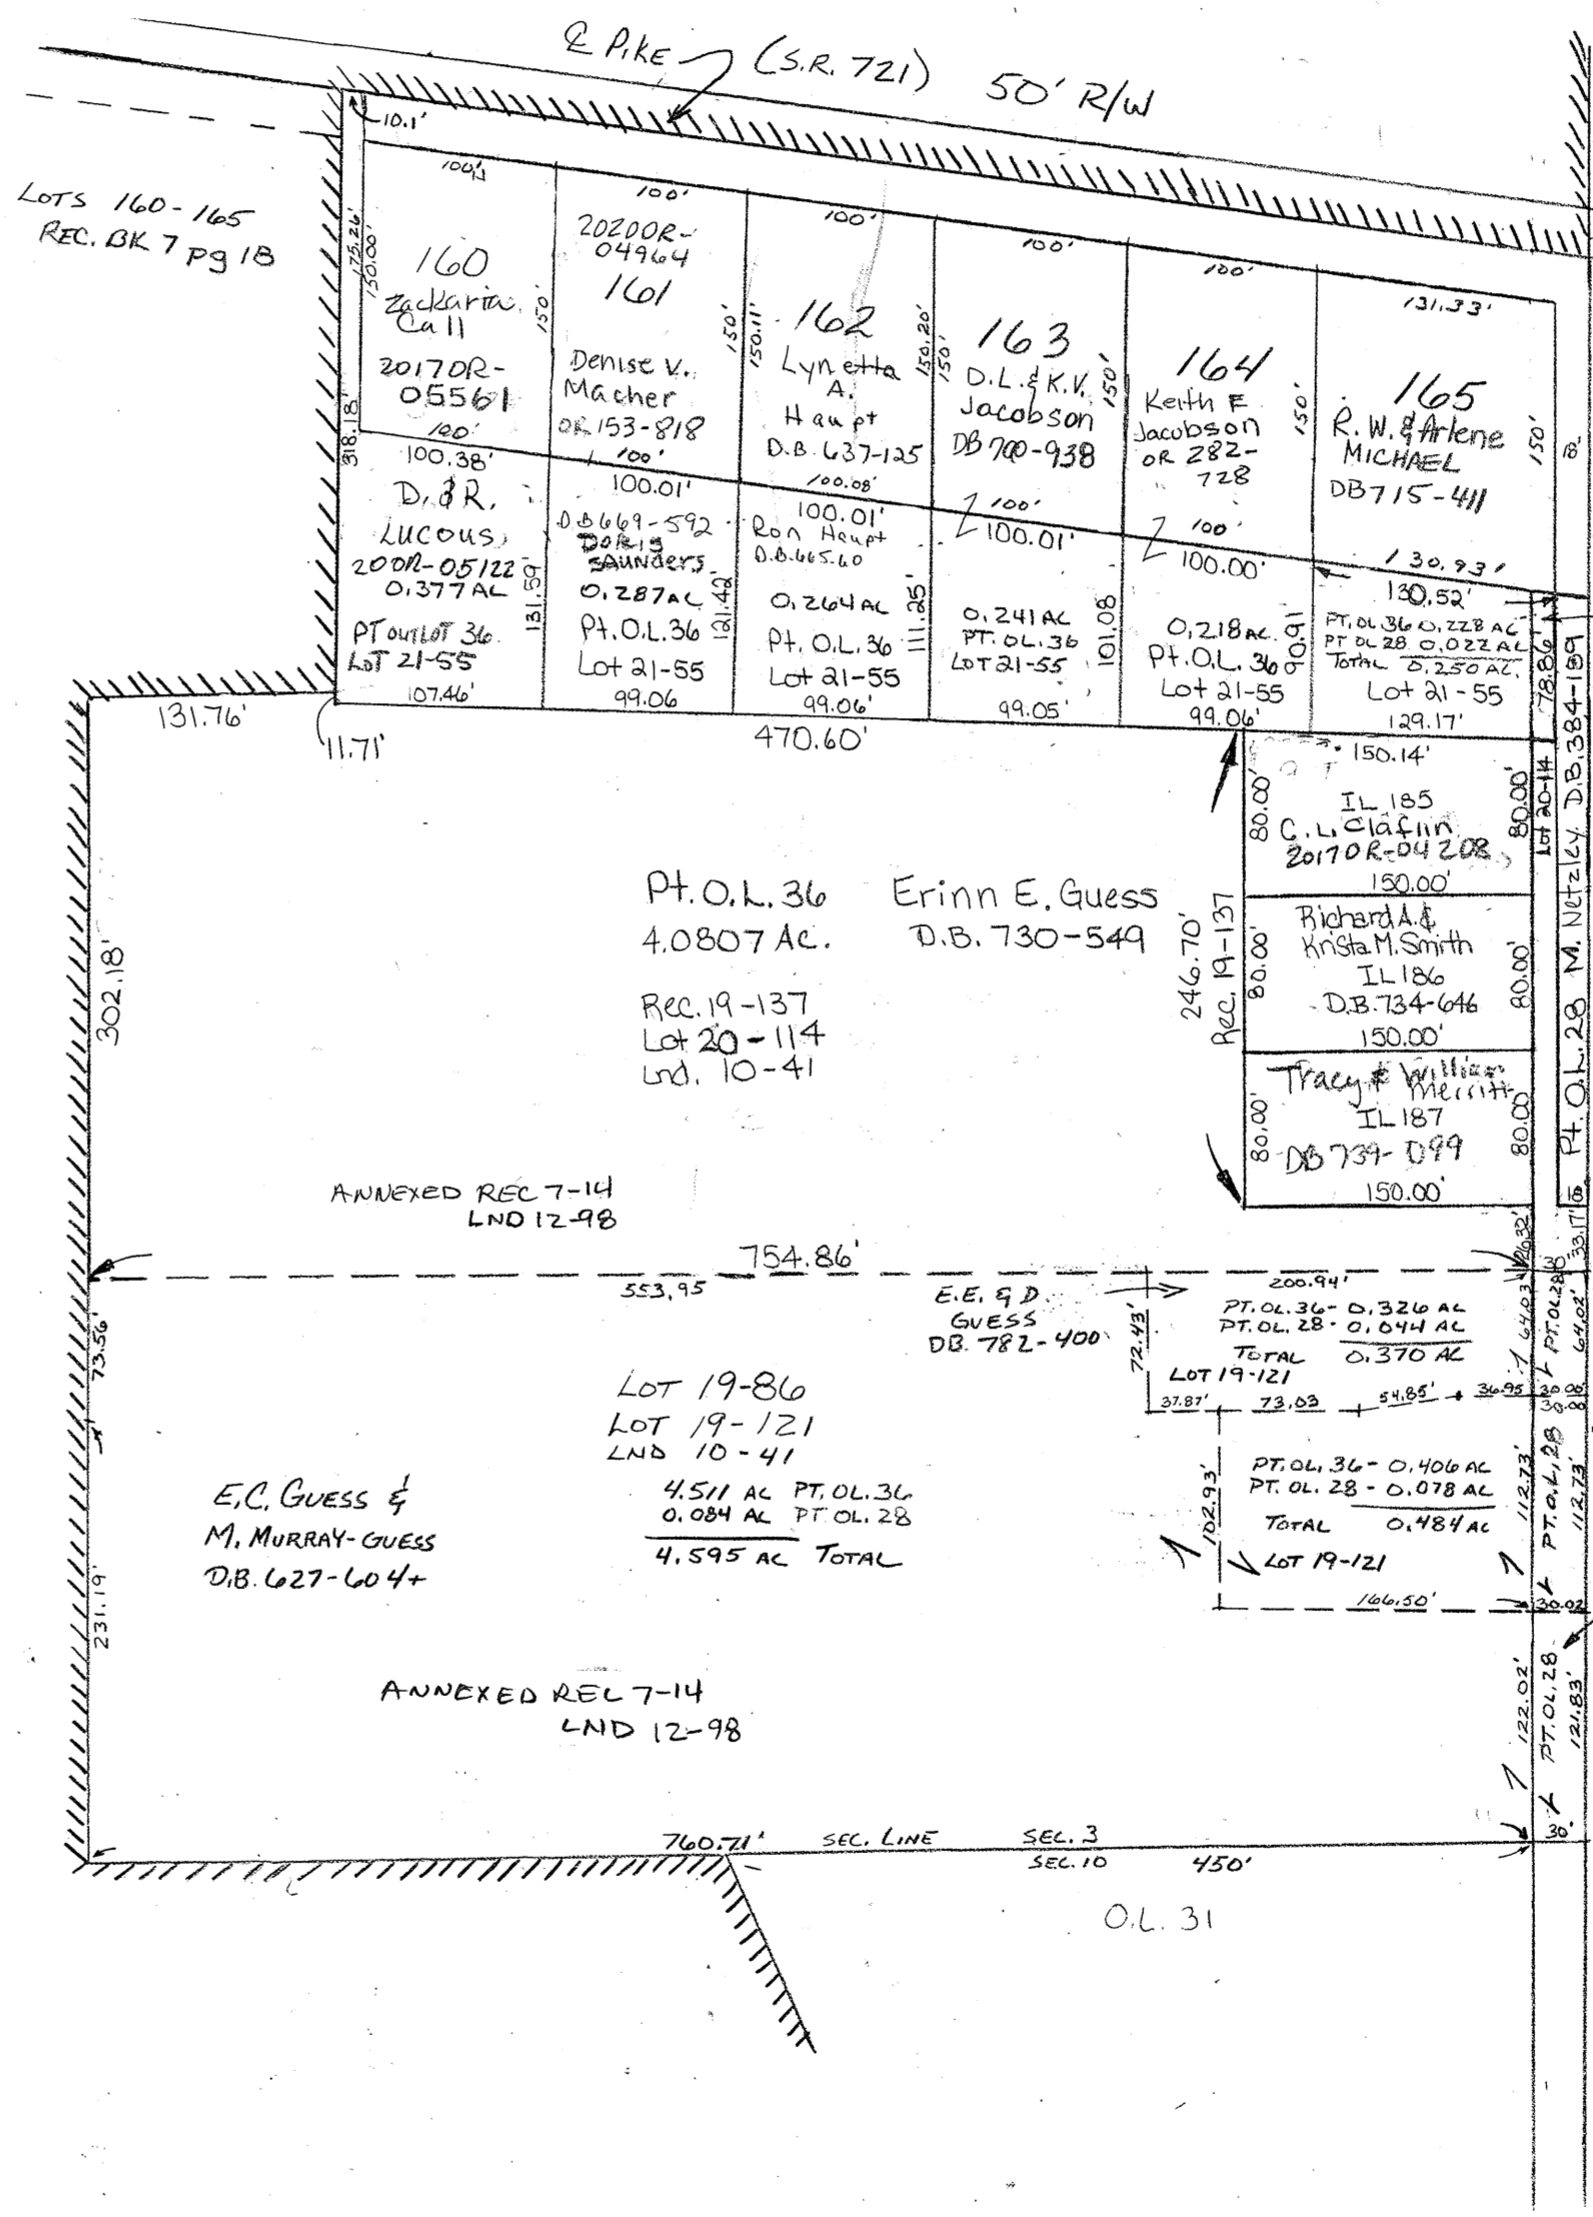 ℄ PIKE (S.R. 721) 50' R/W
10.1'
LOTS 160-165
REC. BK 7 pg 18
175.26'
150.00'
318.18'
100'
160
Zackaria
Call
2017OR-
05561
100'
100'
2020OR-
04964
161
150'
Denise V.
Macher
OR 153-818
100'
100'
150'
150.11'
162
Lynetta
A.
Haupt
D.B. 637-125
100.08'
100'
150.20'
150'
163
D.L. & K.V.
Jacobson
DB 700-938
100'
100'
150'
164
Keith E
Jacobson
OR 282-
728
100'
131.33'
150'
165
R. W. & Arlene
MICHAEL
DB 715-411
150'
130.93'
18'
100.38'
D. & R.
LUCOUS
200R-05122
0.377 AC
PT OUTLOT 36
LOT 21-55
107.46'
131.59'
100.01'
D.B 669-592
DORIS
SAUNDERS
0.287 AC
Pt. O.L. 36
Lot 21-55
99.06
121.42'
100.01'
Ron Haupt
D.B. 665.60
0.264 AC
Pt. O.L. 36
Lot 21-55
99.06'
111.25'
100.01'
0.241 AC
PT. OL. 36
LOT 21-55
99.05'
101.08
100.00'
0.218 AC
Pt. O.L. 36
Lot 21-55
99.06'
90.91
130.52'
PT. OL 36 0.228 AC
PT OL 28 0.022 AC
TOTAL 0.250 AC.
Lot 21-55
129.17'
78.86'
131.76'
11.71'
470.60'
150.14'
80.00'
IL 185
C. L. Claflin
2017OR-04208
80.00'
150.00'
Lot 20-114
Pt. O.L. 28 M. Netzley D.B. 384-189
246.70'
Rec. 19-137
80.00'
Richard A. &
Krista M. Smith
IL 186
D.B. 734-646
80.00'
150.00'
80.00'
Tracy & William
Merritt
IL 187
DB 739-099
80.00
150.00'
302.18'
Pt. O.L. 36 Erinn E. Guess
4.0807 AC. D.B. 730-549
Rec. 19-137
Lot 20-114
Lnd. 10-41
ANNEXED REC 7-14
LND 12-98
754.86'
26.32'
33.17'
553.95
200.94'
E.E. & D.
GUESS
DB. 782-400
72.43'
PT. OL. 36- 0.326 AC
PT. OL. 28- 0.044 AC
TOTAL 0.370 AC
LOT 19-121
64.03'
PT. OL. 28
64.02'
37.87' 73.03 54.85' 36.95 30.00'
30.00
73.56'
LOT 19-86
LOT 19-121
LND 10-41
4.511 AC PT. OL. 36
0.084 AC PT. OL. 28
4.595 AC TOTAL
E.C. GUESS &
M. MURRAY-GUESS
D.B. 627-604+
231.19'
102.93'
PT. OL. 36- 0.406 AC
PT. OL. 28- 0.078 AC
TOTAL 0.484 AC
LOT 19-121
112.73'
PT. O.L. 28
112.73'
166.50'
30.02
ANNEXED REC 7-14
LND 12-98
122.02'
PT. OL. 28
121.83'
760.71' SEC. LINE SEC. 3
SEC. 10 450'
30'
O.L. 31